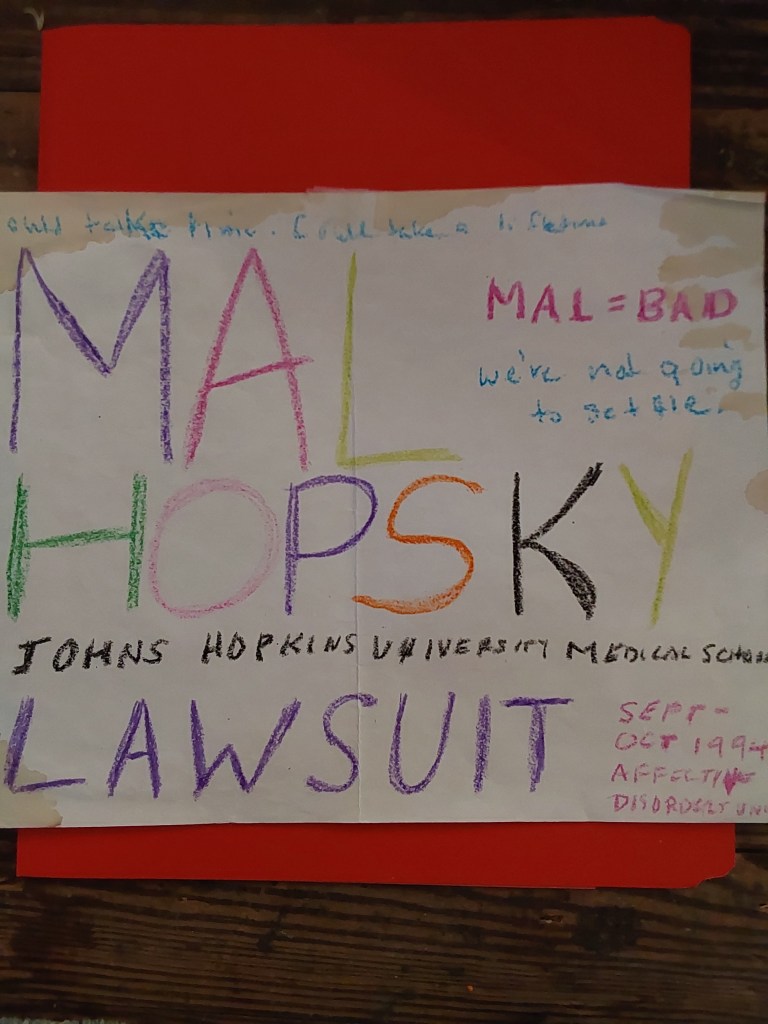 time. Could take a lifetime
MAL
MAL = BAD
we're not going
to get
HOPSKY
JOHNS HOPKINS UNIVERSITY MEDICAL SCHOO
LAWSUIT
SEPT-
OCT 1994
AFFECTIVE
DISORDERS UNI